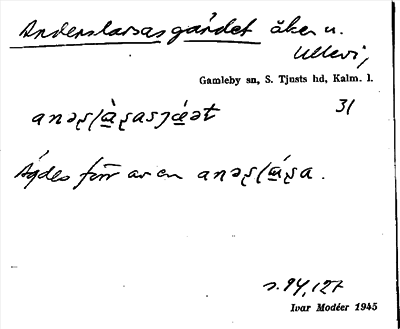 Anderslarsasgärdet åker u.
Ullevi,
Gamleby sn, S. Tjusts hd, Kalm. l.
31
Ägdes förr av en
s. 94, 127
Ivar Modéer 1945